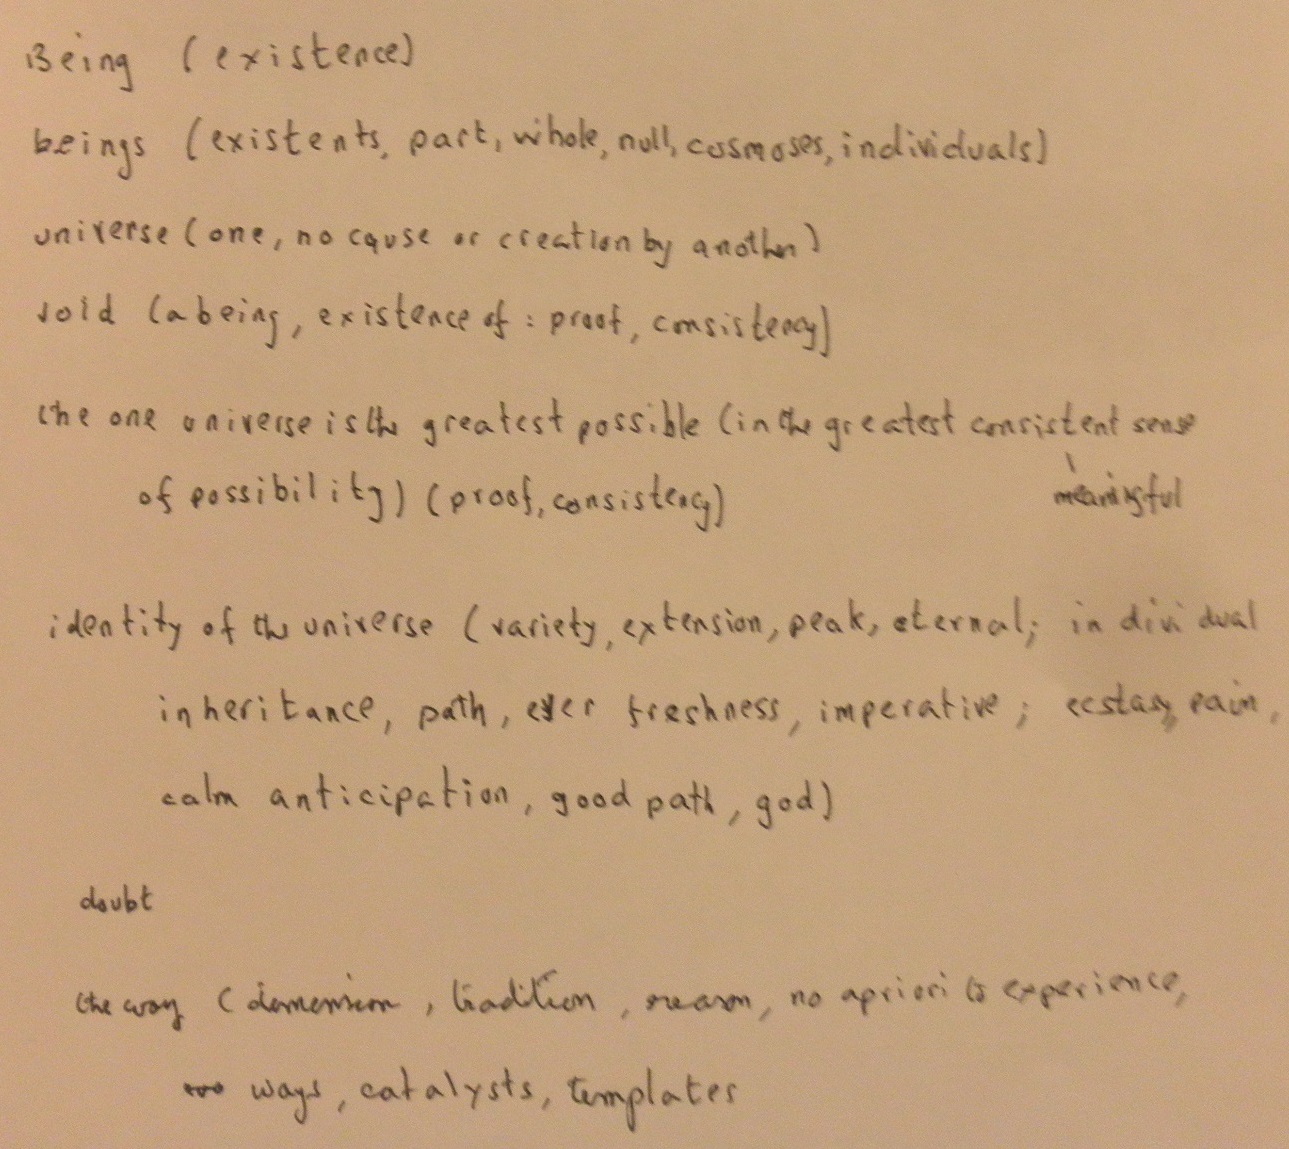 Being (existence)
beings (existents, part, whole, null, cosmoses, individuals)
universe (one, no cause or creation by another)
void (a being, existence of : proof, consistency)
the one universe is the greatest possible (in the greatest consistent sense
meaningful
of possibility) (proof, consistency)
identity of the universe (variety, extension, peak, eternal; individual
inheritance, path, ever freshness, imperative; ecstasy, pain,
calm anticipation, good path, god)
doubt
the way (, tradition, reason, no apriori to experience,
ways, catalysts, templates